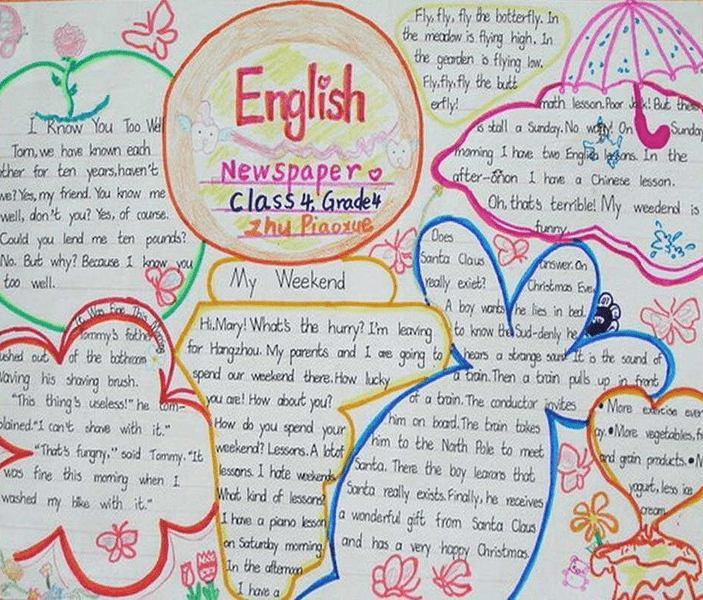 English
Newspaper
Class 4. Grade 4
Zhu Piaoxue
Fly, fly, fly the botterfly. In
the meadow is flying high. In
the gearden is flying low.
Fly, fly, fly the butt
erfly!
I Know You Too Well
Tom, we have known each
other for ten years, haven't
we? Yes, my friend. You know me
well, don't you? Yes, of course.
Could you lend me ten pounds?
No. But why? Because I know you
too well.
It Was Fine This Morning
Tommy's father
ushed out of the bathroom
waving his shaving brush.
"This thing's useless!" he com-
plained. "I can't shave with it."
"That's fungny." said Tommy. "It
was fine this morning when I
washed my bike with it."
My Weekend
Hi, Mary! What's the hurry? I'm leaving
for Hangzhou. My parents and I are going to
spend our weekend there. How lucky
you are! How about you?
How do you spend your
weekend? Lessons. A lot of
lessons. I hate weekends
What kind of lessons?
I have a piano lesson
on Saturday morning.
In the afternoon
I have a
math lesson. Poor Jack! But there
is stall a Sunday. No worry! On Sunday
morning I have two English lessons. In the
after-onon I have a Chinese lesson.
Oh, that's terrible! My weedend is
funny.
Does
Santa Claus
really exiet?
A boy wants
to know the
answer. On
Christmas Eve,
he lies in bed.
Sud-denly he
hears a strange sound. It is the sound of
a train. Then a train pulls up in front
of a train. The conductor invites
him on board. The train takes
him to the North Pole to meet
Santa. There the boy learons that
Santa really exists. Finally, he receives
a wonderful gift from Santa Claus
and has a very happy Christmas.
• More exercise ever
ay. • More vegetables, fr
and grain products. • M
yogurt, less ice
cream.